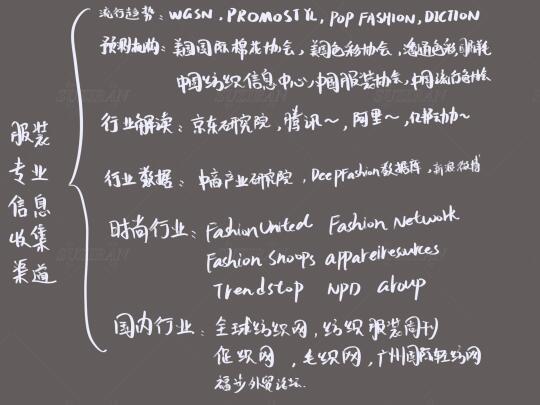 服装
专业
信息
收集
渠道
流行趋势：WGSN，PROMOSTYL，POP FASHION，DICTION
预测机构：美国国际棉花协会，美国色彩协会，
中国纺织信息中心，中国服装协会，中国流行色协会
行业解读：京东研究院，腾讯～，阿里～，亿邦动力～
行业数据：中商产业研究院，DeepFashion数据库，新浪微博
时尚行业：FashionUnited Fashion Network
Fashion Snoops appareiresources
Trendstop NPD Group
国内行业：全球纺织网，纺织服装周刊
织网，毛织网，广州国际轻纺网
福步外贸论坛.